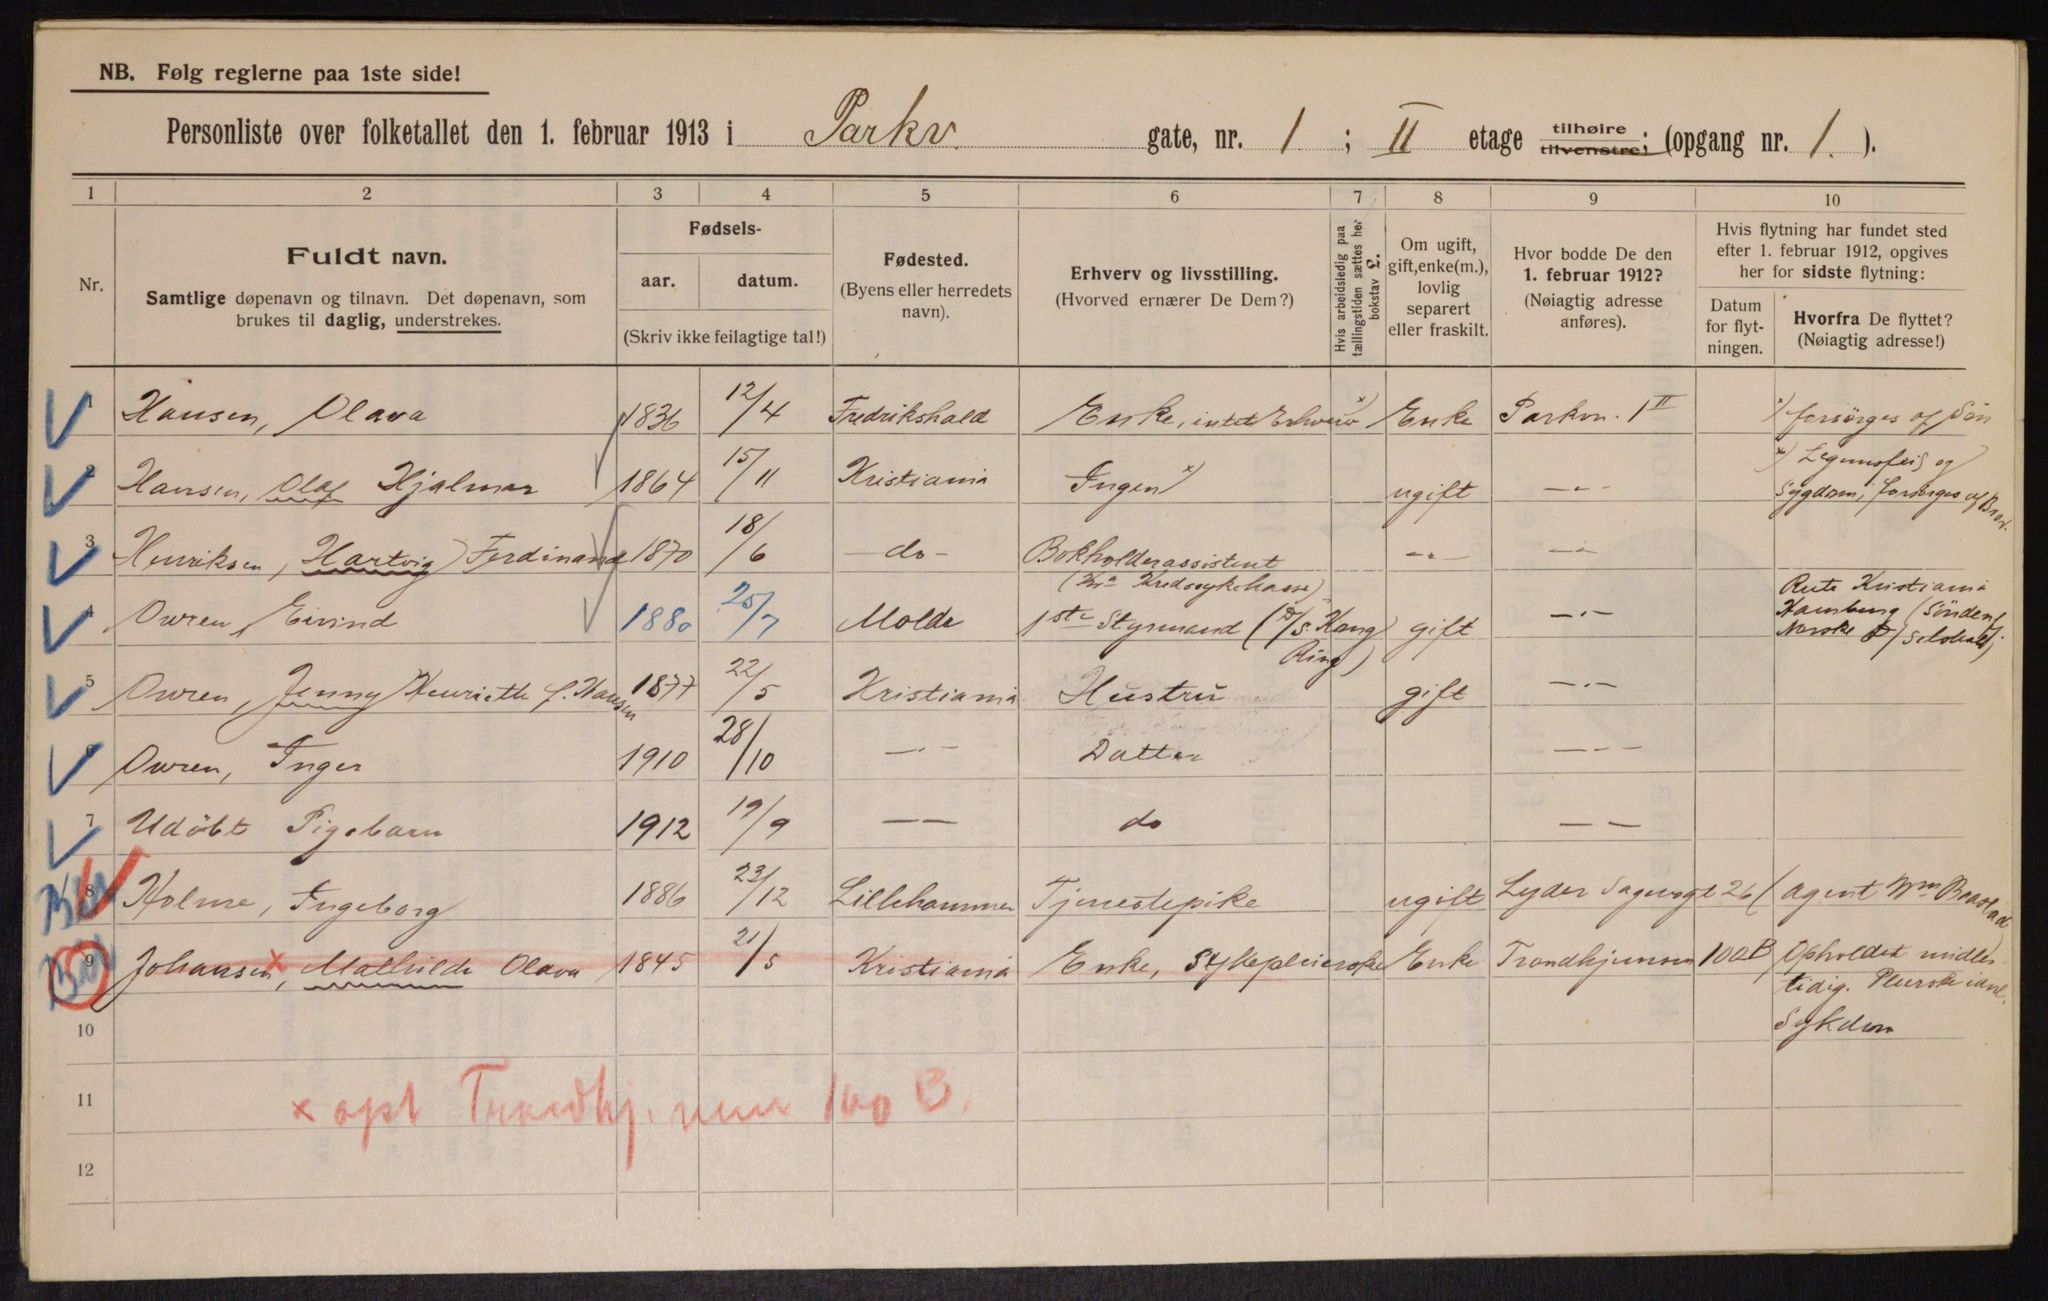 NB. Følg reglerne paa 1ste side!
Personliste over folketallet den 1. februar 1913 i Parkv. gate, nr. 1 ; II etage tilhøire tilvenstre; (opgang nr. 1. ).
1 2 3 4 5 6 7 8 9 10
Nr.
Fuldt navn.
Samtlige døpenavn og tilnavn. Det døpenavn, som
brukes til daglig, understrekes.
Fødsels-
aar. datum.
(Skriv ikke feilagtige tal!)
Fødested.
(Byens eller herredets
navn).
Erhverv og livsstilling.
(Hvorved ernærer De Dem?)
Hvis arbeidsledig paa
tællingstiden sættes her
bokstav L.
Om ugift,
gift, enke(m.),
lovlig
separert
eller fraskilt.
Hvor bodde De den
1. februar 1912?
(Nøiagtig adresse
anføres).
Hvis flytning har fundet sted
efter 1. februar 1912, opgives
her for sidste flytning:
Datum
for flyt-
ningen.
Hvorfra De flyttet?
(Nøiagtig adresse!)
1 Hansen, Olava 1836 12/4 Fredrikshald Enke, intet Erhverv x) Enke Parkvn. 1 II x) forsørges af Søn
2 Hansen, Olaf Hjalmar 1864 15/11 Kristiania Ingen x) ugift —"— x) Legemsfeil og
Sygdom, forsørges af Bror.
3 Henriksen, Hartvig Ferdinand 1870 18/6 — do — Bokholderassistent —"— —"—
(Kra Kredssykekasse)
4 Owren, Eivind 1880 25/7 Molde 1ste Styrmand (D/S. Kong
Ring) gift —"— Rute Kristiania
Hamburg (Sønden
Norske D/Selskab)
5 Owren, Jenny Henriette f. Hansen 1877 22/5 Kristiania Hustru gift —"—
6 Owren, Inger 1910 28/10 —"— Datter —"—
7 Udöbt Pigebarn 1912 19/9 — — do — —
8 Holme, Ingeborg 1886 23/12 Lillehammer Tjenestepike ugift Lyder Sagensgt 26 (agent Wm
9 Johansen, x Mathilde Olava 1845 21/5 Kristiania Enke, Sykepleierske Enke Trondhjemsvn 100B Opholder midler
tidig. Pleierske
Sykdom
10
11
12
x opt Trondhj. veien 100 B.